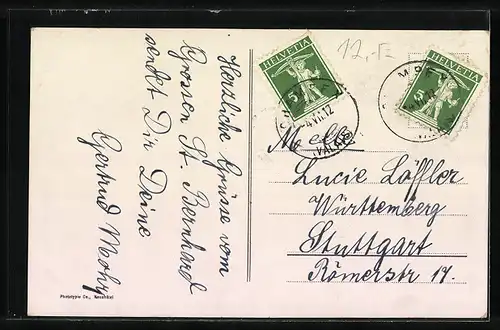 Herzliche Grüsse vom
Grossen St. Bernhard
sendet Dir Deine
Gertrud Mohr
Phototypie Co., Neuchâtel
12,-
HELVETIA
5
HELVETIA
5
VII.12
(VALAIS)
Mlle
Lucie Löffler
Württemberg
Stuttgart
Römerstr 17.